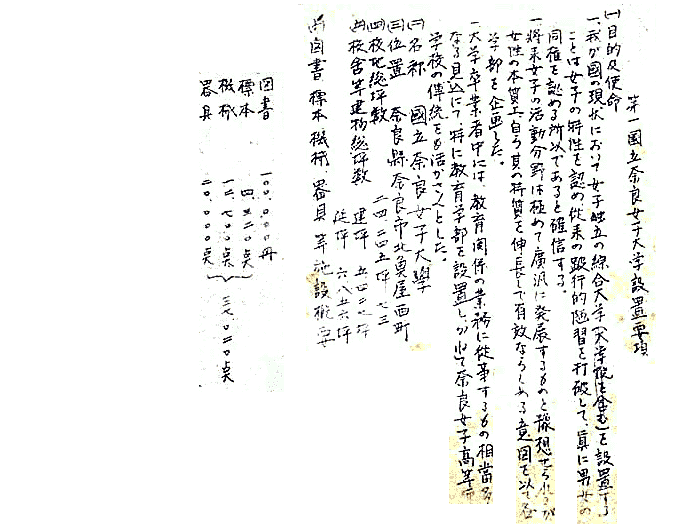 第一 國立奈良女子大学設置要項
(一) 目的及使命
一、我が國の現状において女子独立の綜合大学(大学院を含む)を設置する
ことは女子の特性を認め従来の跛行的陋習を打破して、眞に男女の
同権を認める所以であると確信する。
一 将来女子の活動分野は極めて廣汎に発展するものと豫想せられるが
女性の本質上自ら其の特質を伸長して有效ならしめる意図を以て
学部を企画した。
一 大学卒業者中には、教育関係の業務に従事するもの相當
なる見込にて、特に教育学部を設置し 奈良女子高等
学校の傳統をも活かさんとした。
(二) 名称 國立奈良女子大學
(三) 位置 奈良縣奈良市北魚屋西町
(四) 校地総坪数 二四、二四五坪七三
校舎等建物総坪数 建坪 五、四二七坪
延坪 六、八五六坪
図書、標本、機械、器具等施設概要
図書 一〇〇、〇〇〇冊
標本 四、三二〇点
機械 一二、七〇〇点
器具 二〇、〇〇〇点
三七、〇二〇点